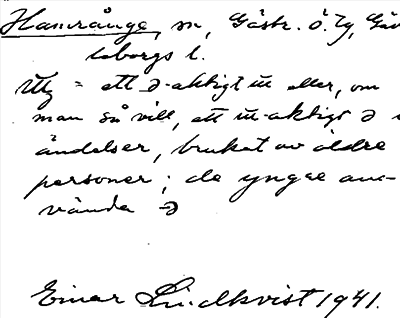 Hamrånge, sn, Gästr. Ö. Tg, Gäv
leborgs l.
= ett ə-aktigt ɯ eller, om
man så vill, ett ɯ-aktigt ə i
ändelser, brukat av äldre
personer; de yngre an-
vända ə
Einar Lindkvist 1941.